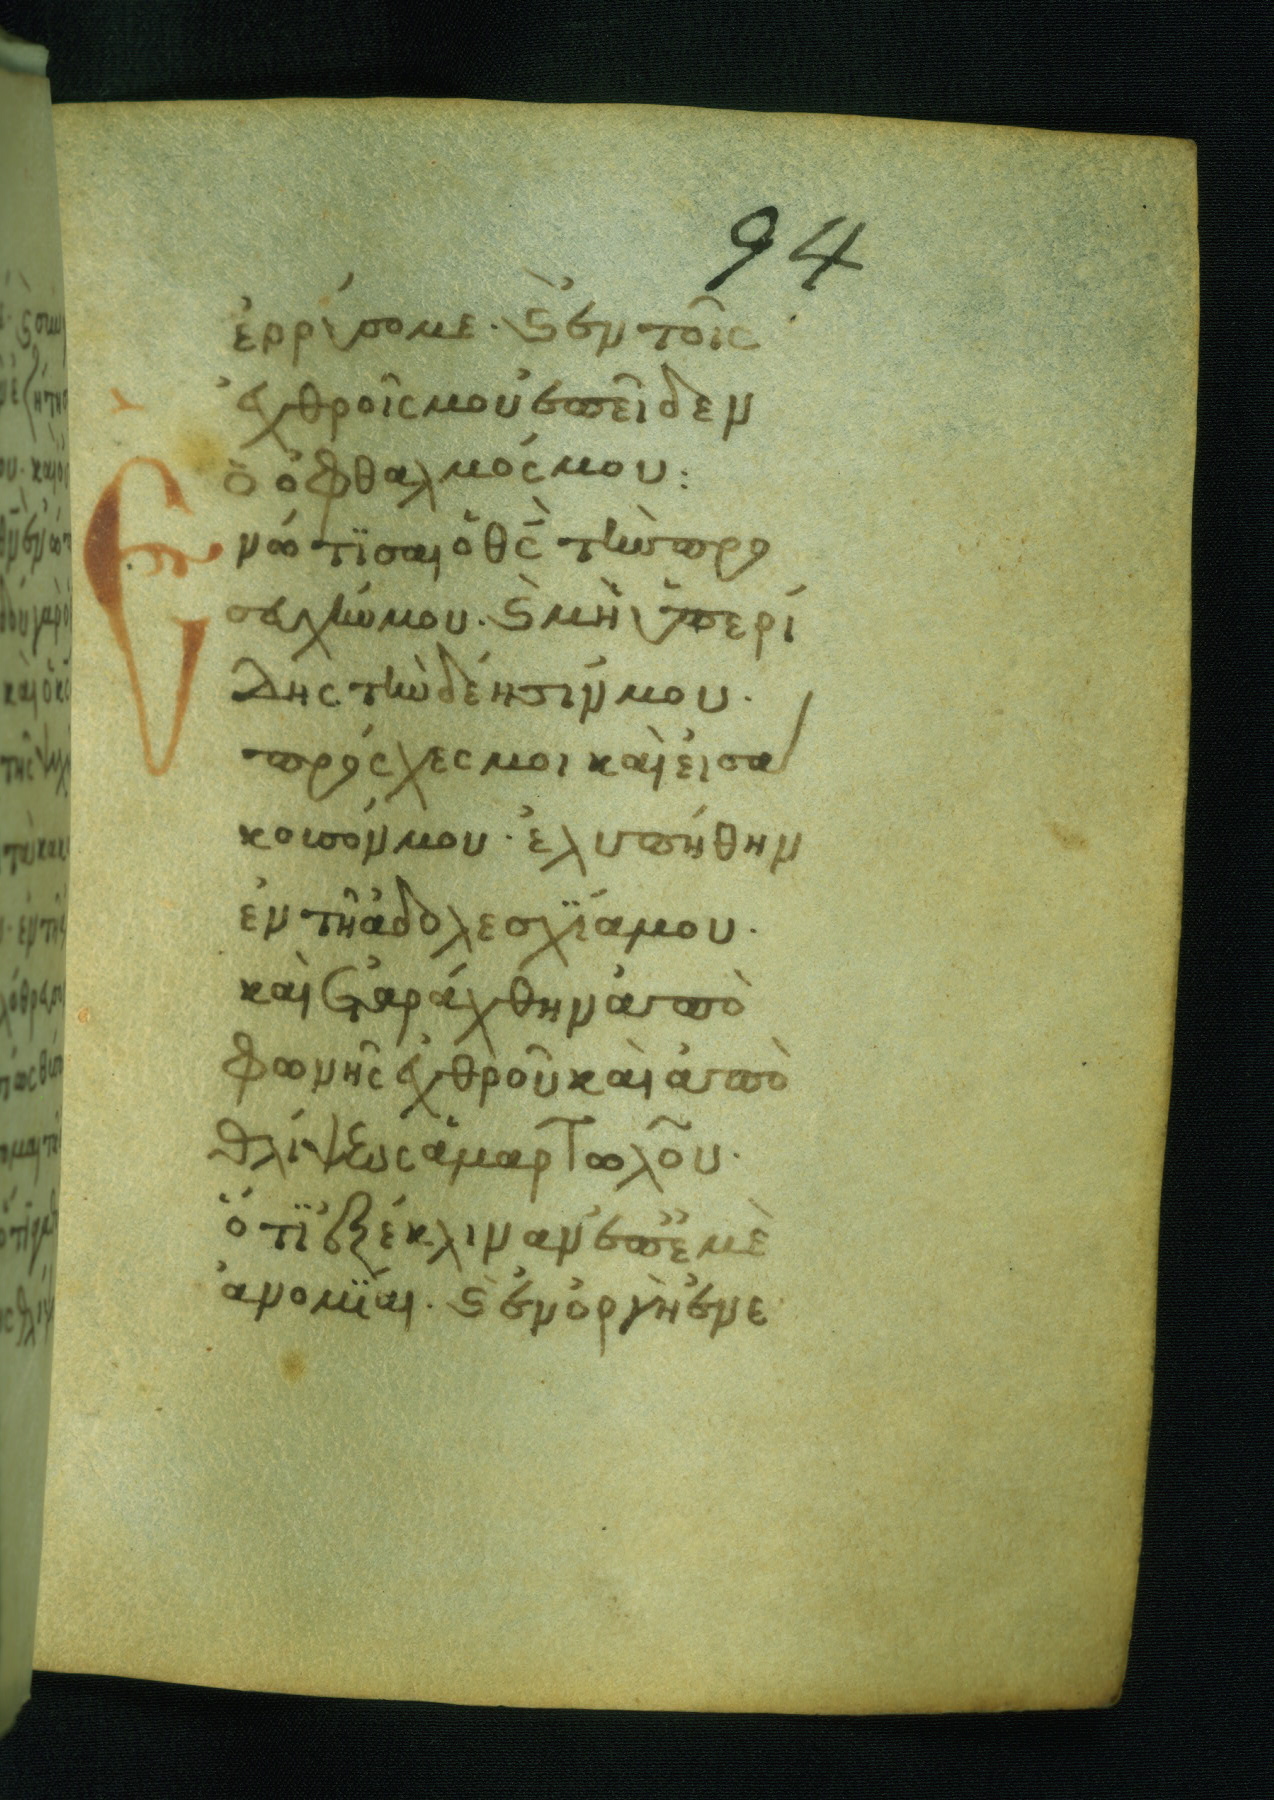 94
ἐρρύσομε. ϗ ἐν τοῖς
ἐχθροῖς μου ἐπεῖδεν
ὁ ὀφθαλμός μου:
Ἐνώτϊσαι ὁ θς̅ τὴν προ
σευχήν μου. ϗ μὴ ὑπερί
δης τὴν δέησίν μου.
πρόσχες μοι καὶ εἰσά
κουσόν μου. ἐλυπήθην
ἐν τῆ ἀδολεσχΐα μου.
καὶ ἐταράχθην ἀπὸ
φωνῆς ἐχθροῦ καὶ ἀπὸ
θλίψεως ἁμαρτωλοῦ.
ὅτϊ ἐξέκλιναν ἐπ ἐμὲ
ἀνομΐαι. ϗ ἐν ὀργὴ ἐνε